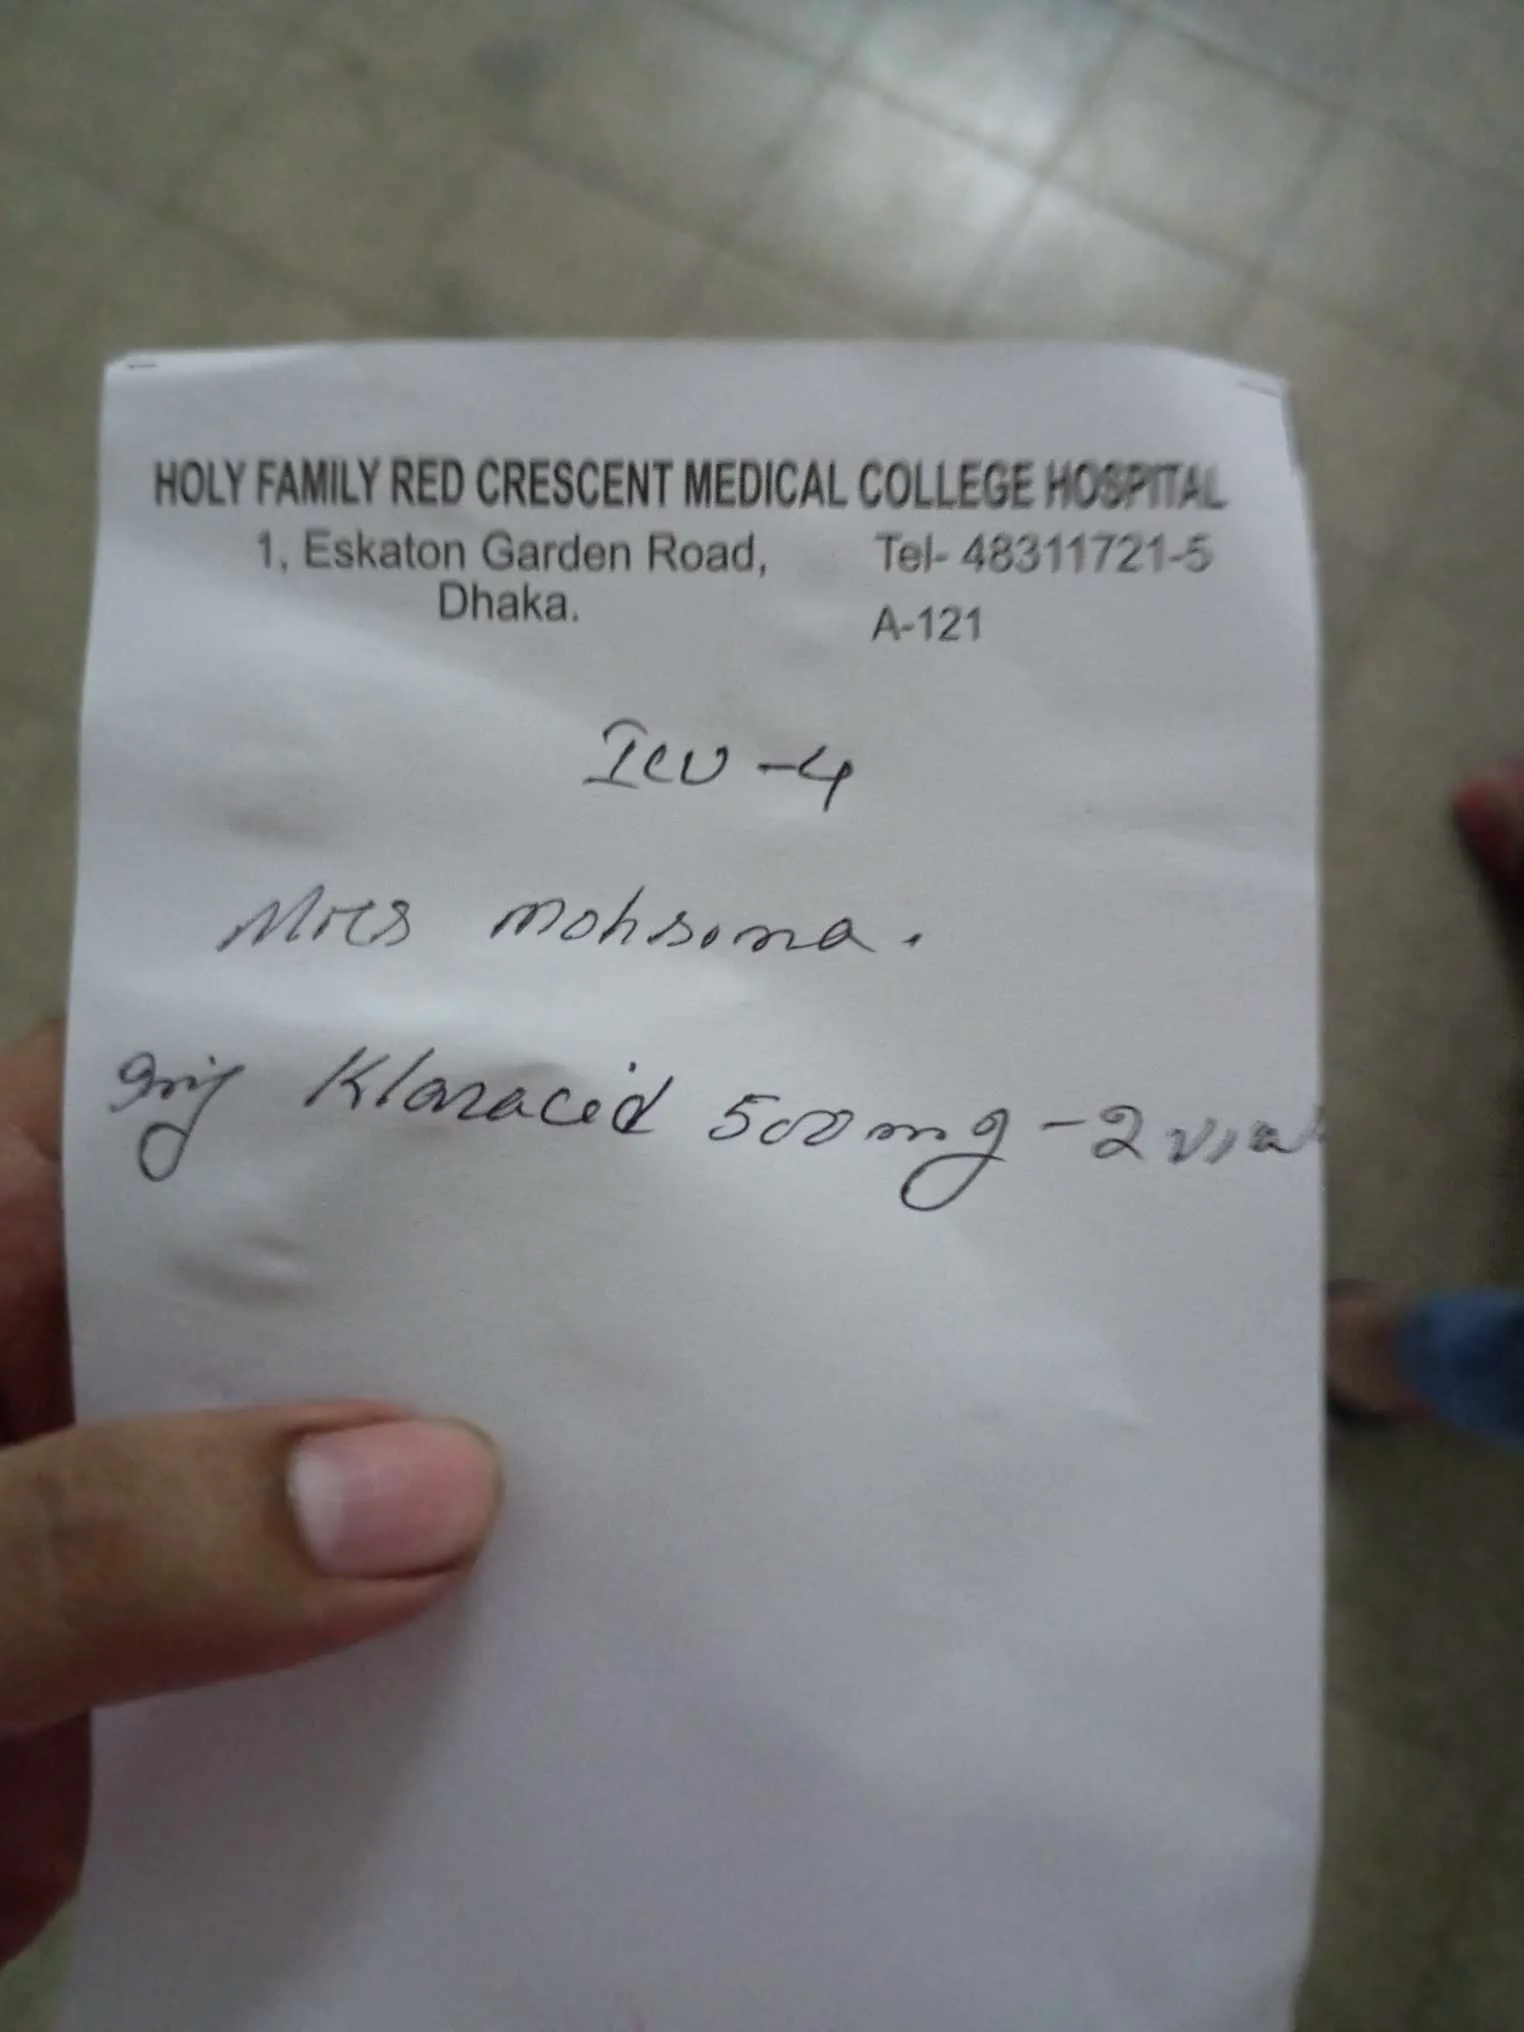 HOLY FAMILY RED CRESCENT MEDICAL COLLEGE HOSPITAL
1, Eskaton Garden Road, Tel- 48311721-5
Dhaka. A-121
ICU-4
Mrs Mohsena.
Inj Klaracid 500mg-2 vial